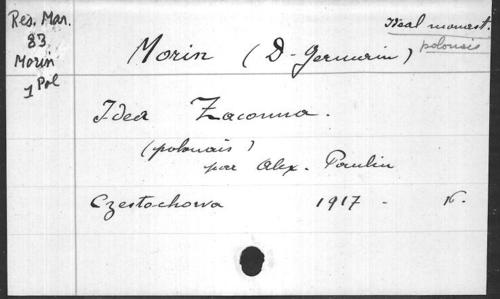 Res. Man.
83
Morin
1 Pol
Ideal monast.
polonais
Morin (D. Germain)
Idea Zaconna.
(polonais)
par Alex. Paulin
Czestochowa 1917 -